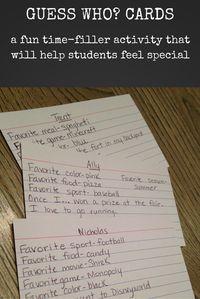 GUESS WHO? CARDS
a fun time-filler activity that
will help students feel special
Trent
Favorite meal-spaghetti
game-Minecraft
blue
the fort in my backyard
Ally
Favorite color-pink
Favorite food-pizza
Favorite season-
Summer
Favorite sport-baseball
Once I... won a prize at the fair.
I love to go running.
Nicholas
Favorite sport-football
Favorite food-candy
Favorite movie-Shrek
Favorite game-Monopoly
Favorite color-black
went to Disneyworld